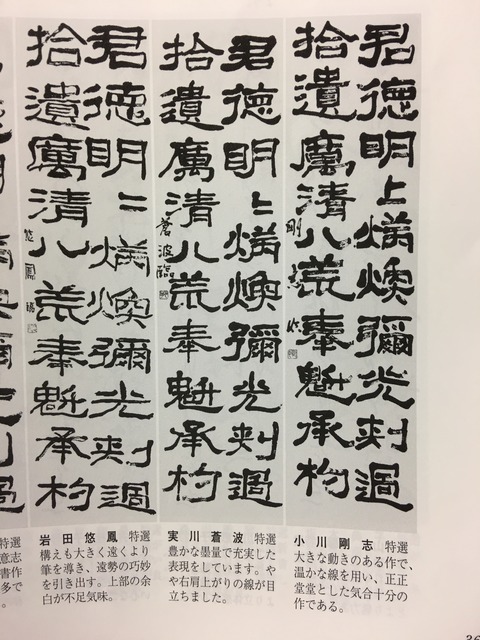 君德明〻炳煥彌光刺過
拾遺厲清八荒奉魁承杓
剛志臨
君德明〻炳煥彌光刺過
拾遺厲清八荒奉魁承杓
蒼波臨
君德明〻炳煥彌光刺過
拾遺厲清八荒奉魁承杓
悠鳳臨
特選
意志
書作
多で
。
岩田悠鳳 特選
構えも大きく遠くより
筆を導き、遠勢の巧妙
を引き出す。上部の余
白が不足気味。
実川蒼波 特選
豊かな墨量で充実した
表現をしています。や
や右肩上がりの線が目
立ちました。
小川剛志 特選
大きな動きのある作で、
温かな線を用い、正正
堂堂とした気合十分の
作である。